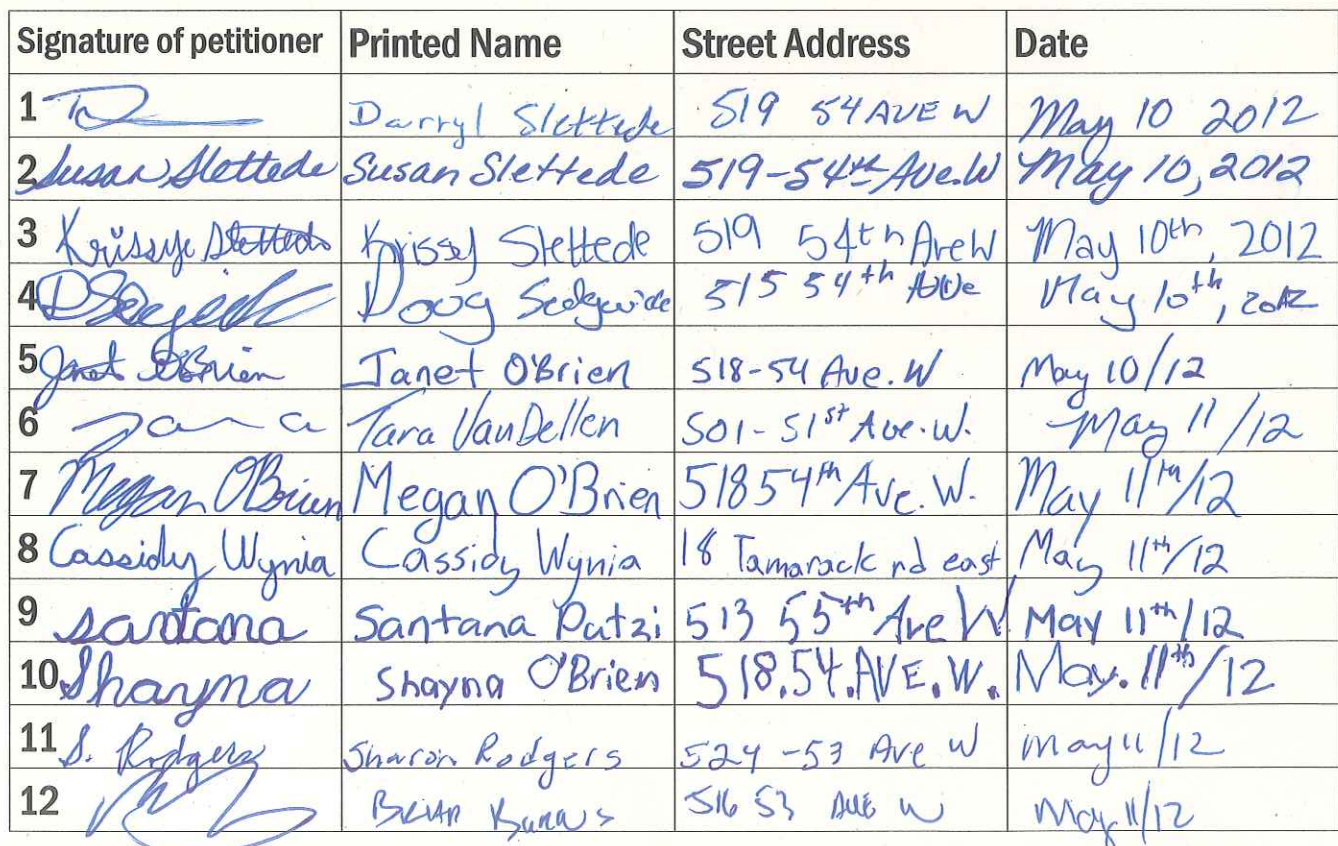 Signature of petitioner Printed Name Street Address Date
1 Darryl Slettede 519 54 AVE W May 10 2012
2 Susan Slettede Susan Slettede 519-54th Ave.W May 10, 2012
3 Krissy Slettede Krissy Slettede 519 54th Ave W May 10th, 2012
4 Doug 515 54th Ave May 10th, 2012
5 Janet O'Brien Janet O'Brien 518-54 Ave. W May 10/12
6 Tara VanDellen 501-51st Ave. W. May 11/12
7 Megan O'Brien Megan O'Brien 518 54th Ave. W. May 11th/12
8 Cassidy Wynia Cassidy Wynia 18 Tamarack rd east May 11th/12
9 santana Santana Patzi 513 55th Ave W May 11th/12
10 Shayna Shayna O'Brien 518.54.AVE.W. May. 11th/12
11 S. Rodgers Sharon Rodgers 524-53 Ave W may 11/12
12 BRIAN 516 53 AVE W May 11/12